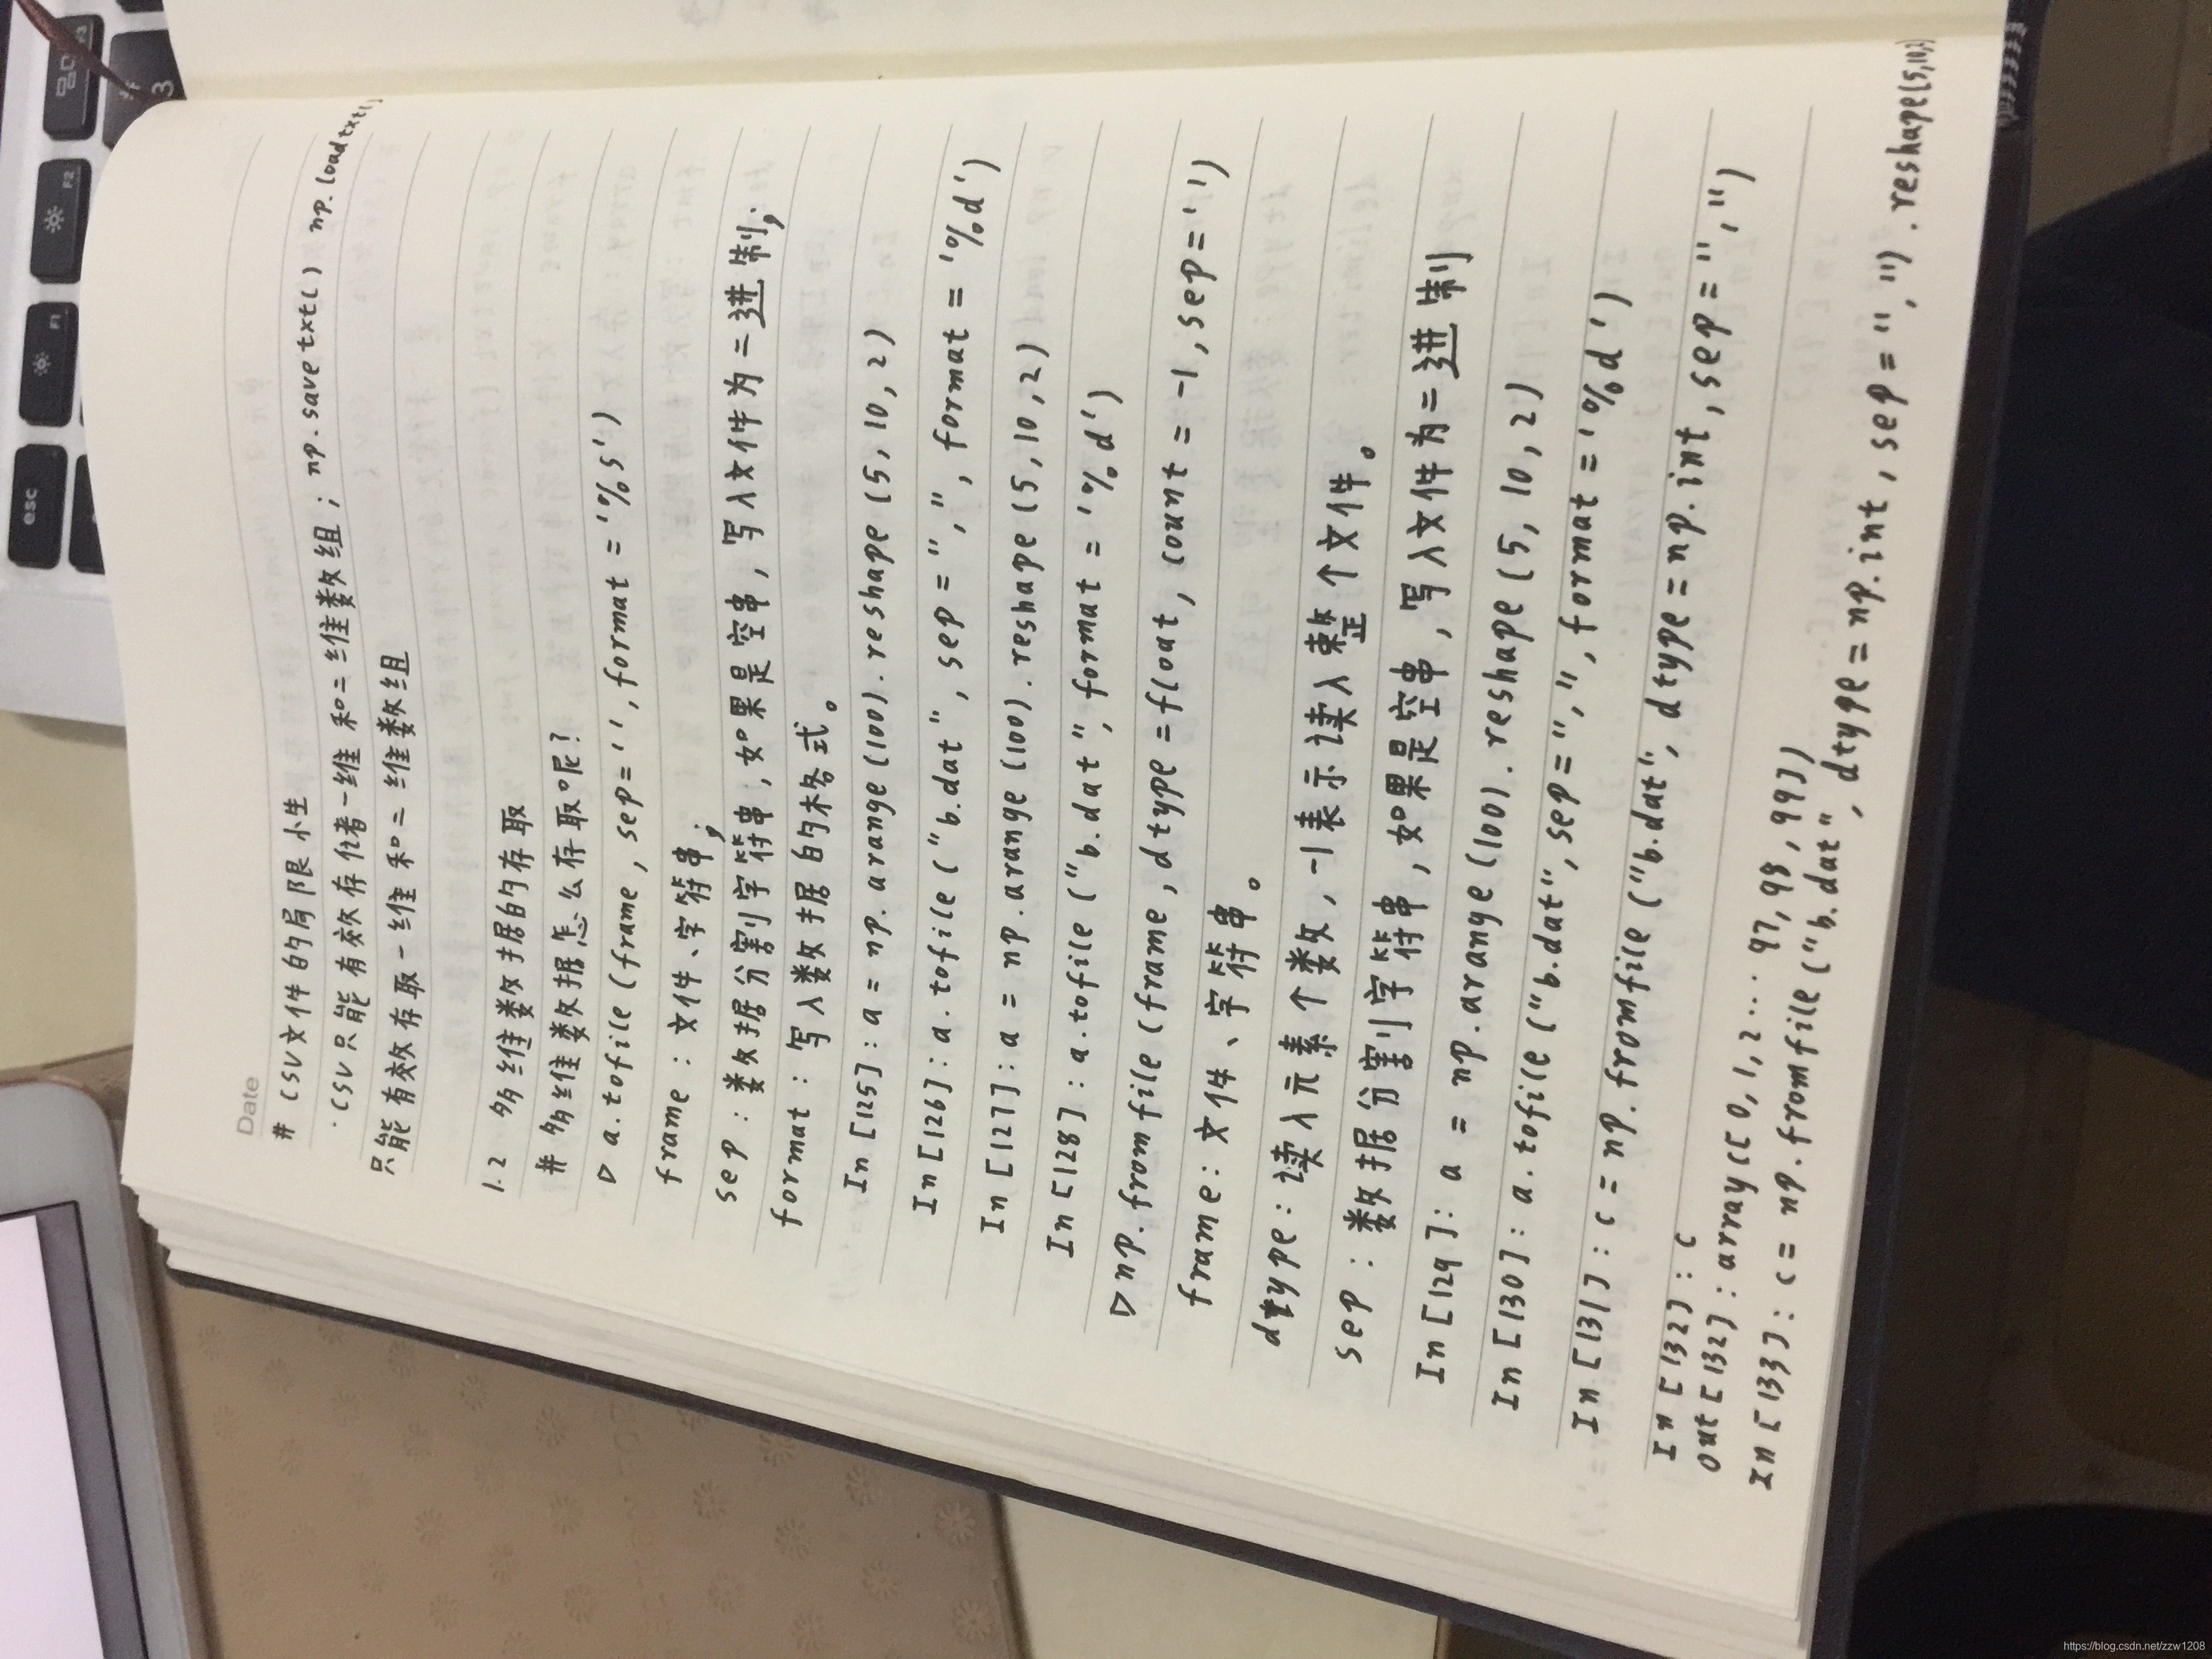 Date
# CSV文件的局限小生
·CSV只能有效存储一维和二维数组；np.savetxt() np.loadtxt()
只能有效存取一维和二维数组
1.2 多维数据的存取
# 多维数据怎么存取呢?
▷ a.tofile(frame, sep='', format='%s')
frame：文件、字符串;
sep：数据分割字符串,如果是空串,写入文件为二进制;
format：写入数据的格式。
In[125]: a = np.arange(100).reshape(5,10,2)
In[126]: a.tofile("b.dat", sep=",", format='%d')
In[127]: a = np.arange(100).reshape(5,10,2)
In[128]: a.tofile("b.dat", format='%d')
▷ np.fromfile(frame, dtype=float, count=-1, sep='')
frame：文件、字符串。
dtype：读入元素个数,-1表示读入整个文件。
sep：数据分割字符串,如果是空串,写入文件为二进制
In[129]: a = np.arange(100).reshape(5,10,2)
In[130]: a.tofile("b.dat", sep=",", format='%d')
In[131]: c = np.fromfile("b.dat", dtype=np.int, sep=",")
In[132]: c
out[132]: array([0,1,2... 97,98,99])
In[133]: c = np.fromfile("b.dat", dtype=np.int, sep=",").reshape(5,10,2)
esc
F1
F2
F3
3
https://blog.csdn.net/zzw1208